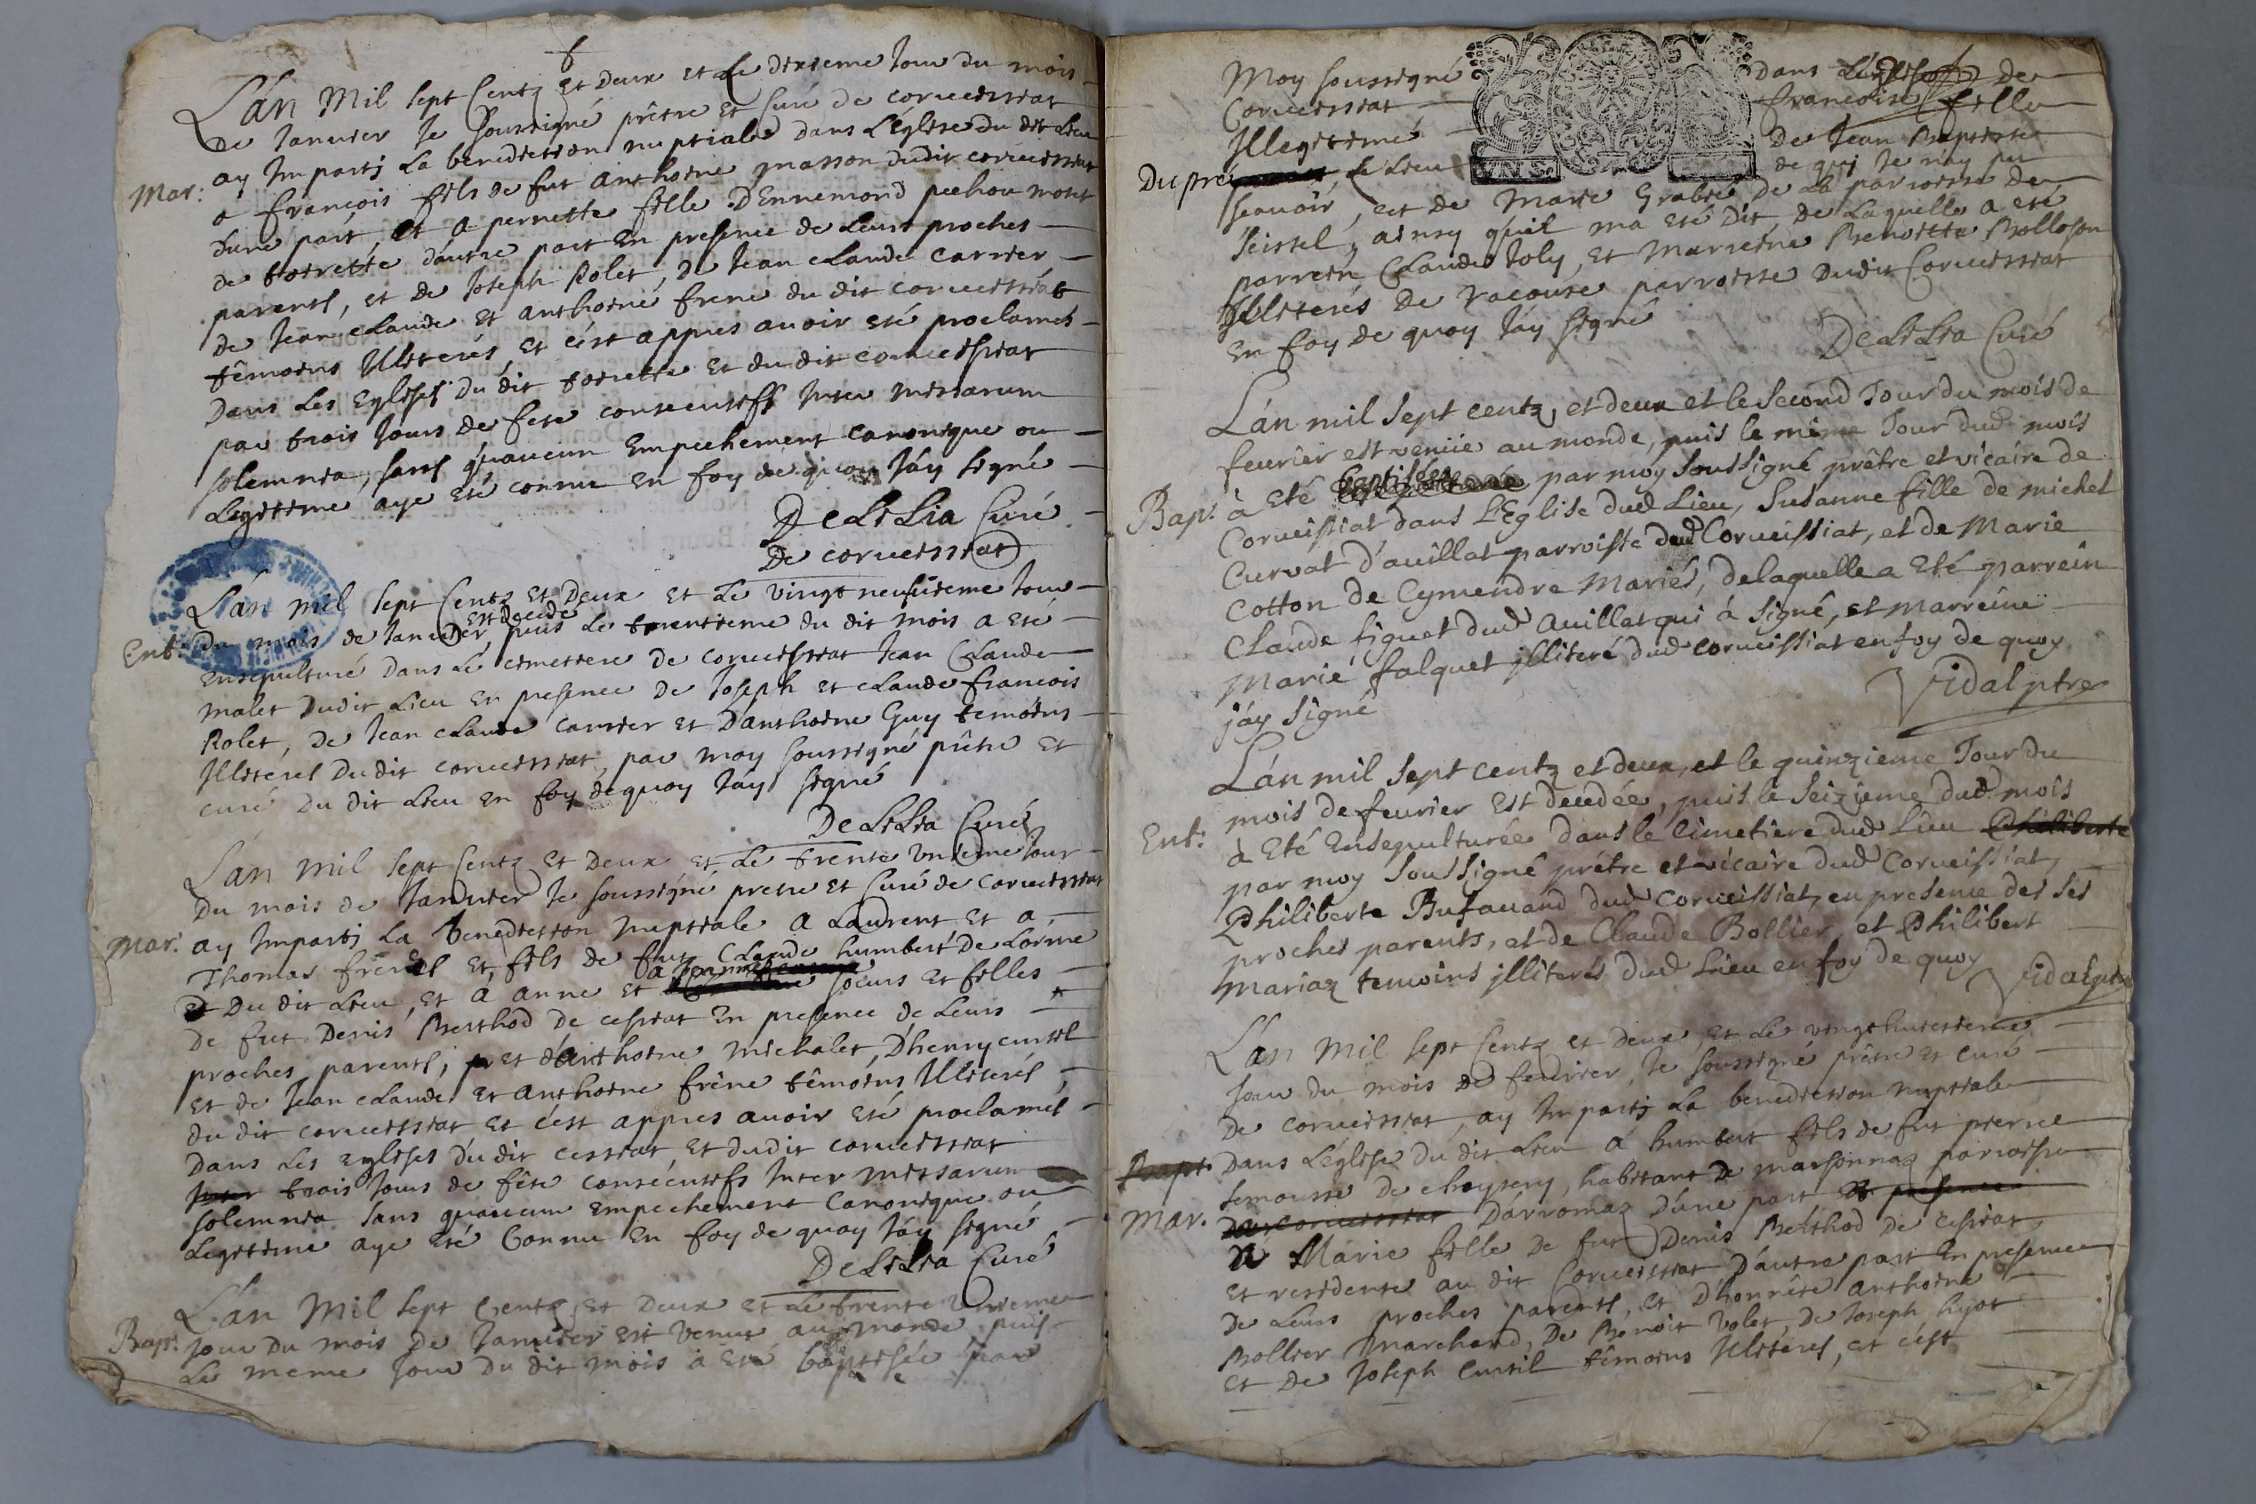 L'án Mil sept Centz Et Deux Et Le dixieme Jour du mois
De Januier Je soussigné prêtre Et Curé de corueissiat
ay Imparti La benediction nuptiale dans L'Eglise du dit Lieu
Mar:
a françois fils de fut anthoine masson dudit corueissiat
d'une part, Et a pernette fille D'Ennemond pochon
de toirette d'autre part En presence de Leurs proches
parents, et De Joseph Rolet, De Jean cLaude carrier
de Jean cLaude Et anthoine frene du dit corueissiat
têmoins Illiterés, et c'ést appres auoir eté proclamés
Dans Les Eglises du dit toirette Et du dit corueissiat
par trois Jours de feste consecutifs Inter missarum
solemnia, sans qu'aucun Empechement canonique ou
Legitime aye eté connu En foy de quoy J'áy signé
DeLiLia Curé
De corueissiat
L'án mil sept Centz Et Deux Et Le vingt neufuieme Jour
Ent:
du mois de Januier est decedé puis Le trentieme du dit mois a eté
Ensepulturé dans Lé cimetiere de corueissiat Jean Claude
malet Dudit Lieu En presence de Joseph et cLaude francois
Rolet, De Jean cLaude carrier Et D'anthoine Guy temoins
Illiterés Du dit corueissiat, par moy soussigné prêtre Et
curé Du dit Lieu En foy dé quoy J'áy signé
DeLiLia Curé
L'án mil sept Centz Et Deux Et Le trente Vnieme Jour
Du mois de Januier Je soussigné pretre Et Curé de Corueissiat
Mar:
ay Imparti La benediction Nuptiale a Laurent Et a
Thomas freres Et fils de fut CLaude humbert De Lorme
Du dit Lieu, Et á anne Et soeurs Et filles
de fut Denis Berthod De cessiat En presence de Leurs
proches parents, et d'anthoine michalet, D'henry cursil
Et de Jean cLaude Et anthoine frêne têmoins Illiterés
du dit corueissiat Et c'ést appres auoir Eté proclamés
Dans Les Eglises dú dit cessiat, Et dudit corueissiat
trois Jours de fête consécutifs Inter missarum
solemnia sans qu'aucun Empechement Canonique ou
Legitime aye Eté Connu En foy de quoy J'áy signé
DeLiLia Curé
L'án Mil sept Centz, Et Deux Et Le trente Vnieme
Bap:
Jour Du mois De Januier Est Venue au monde puis
Le meme Jour Du dit mois a Eté baptisée par
Moy soussigné dans L'église De
Corueissiat francoise fille
Illegitime De Jean Baptiste
Du pre Le Lieu de qui Je nay pu
scauoir, et de Marie Grabie De La parroisse De
seissel, ainsy qu'il ma eté Dit, de Laquelle a eté
parrein CLaude Joly, Et Marreine Benoitte Bolloson
Illiterés De racouse parroisse Dudit Corueissiat
En foy de quoy J'áy signé
DeLiLia Curé
L'án mil sept centz, et deux et le second Jour du mois de
feurier est venüe au monde, puis le même Jour dud. mois
Bap:
à Eté baptisée par moy soussigné prêtre et vicaire de
Corueissiat dans L'Eglise dud Lieu, Susanne fille de michel
Curuat d'auillat parroisse dud Corueissiat, et de Marie
Cotton de Cymendre mariés, de laquelle a Eté parrein
Claude figuet dud auillat qui à signé, et marreine
Marie falquet jlliteré dud corueissiat en foy de quoy
j'áy signé
Vidal ptre
L'án mil sept centz et deux, et le quinzieme Jour du
mois de feurier Est decedée, puis le seizieme dud. mois
Ent:
à Eté Ensepulturée dans le Cimetiere dud Lieu Philiberte
par moy soussigné prêtre et vicaire dud Corueissiat,
Philiberte Bufauand dud Corueissiat, en presence des ses
proches parents, et de Claude Bollier, et Philibert
Mariaz temoins jlliterés dud Lieu en foy de quoy
Vidal ptre
L'an Mil sept Centz et Deux Et Le vingt huictieme
Jour du mois de feurier, Je soussigné prêtre Et curé
De corueissiat, ay Imparti La benediction nuptiale
Bapt:
Dans L'église dú dit Lieu á humbert fils de fut pierre
Mar.
semousse De choysery, habitant De marsonnaz parroisse
D'arromaz D'úne part
a Marie fille De fut Denis Berthod De cessiat
Et residente au dit Corueissiat D'autre part En presence
De Leurs proches parents, Et D'honnête anthoine
Bollier Marchand, De Bénoit Volet, De Joseph hyot
Et De Joseph Cursil têmoins Illiterés, et c'ést